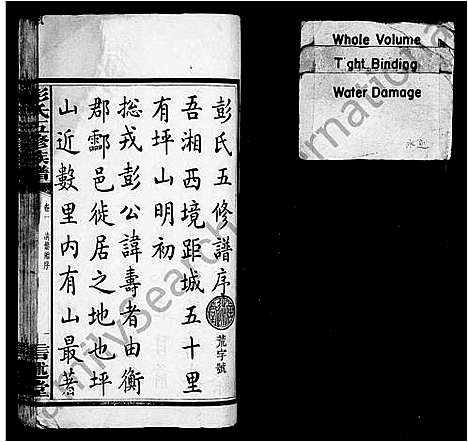 彭氏五修譜序
荒字號
吾湘西境距城五十里
有坪山明初
捴戎彭公諱壽者由衡
郡酃邑徙居之地也坪
山近數里内有山最著
彭氏五修族譜
卷一
信述堂
Whole Volume
Tight Binding
Water Damage
FamilySearch International